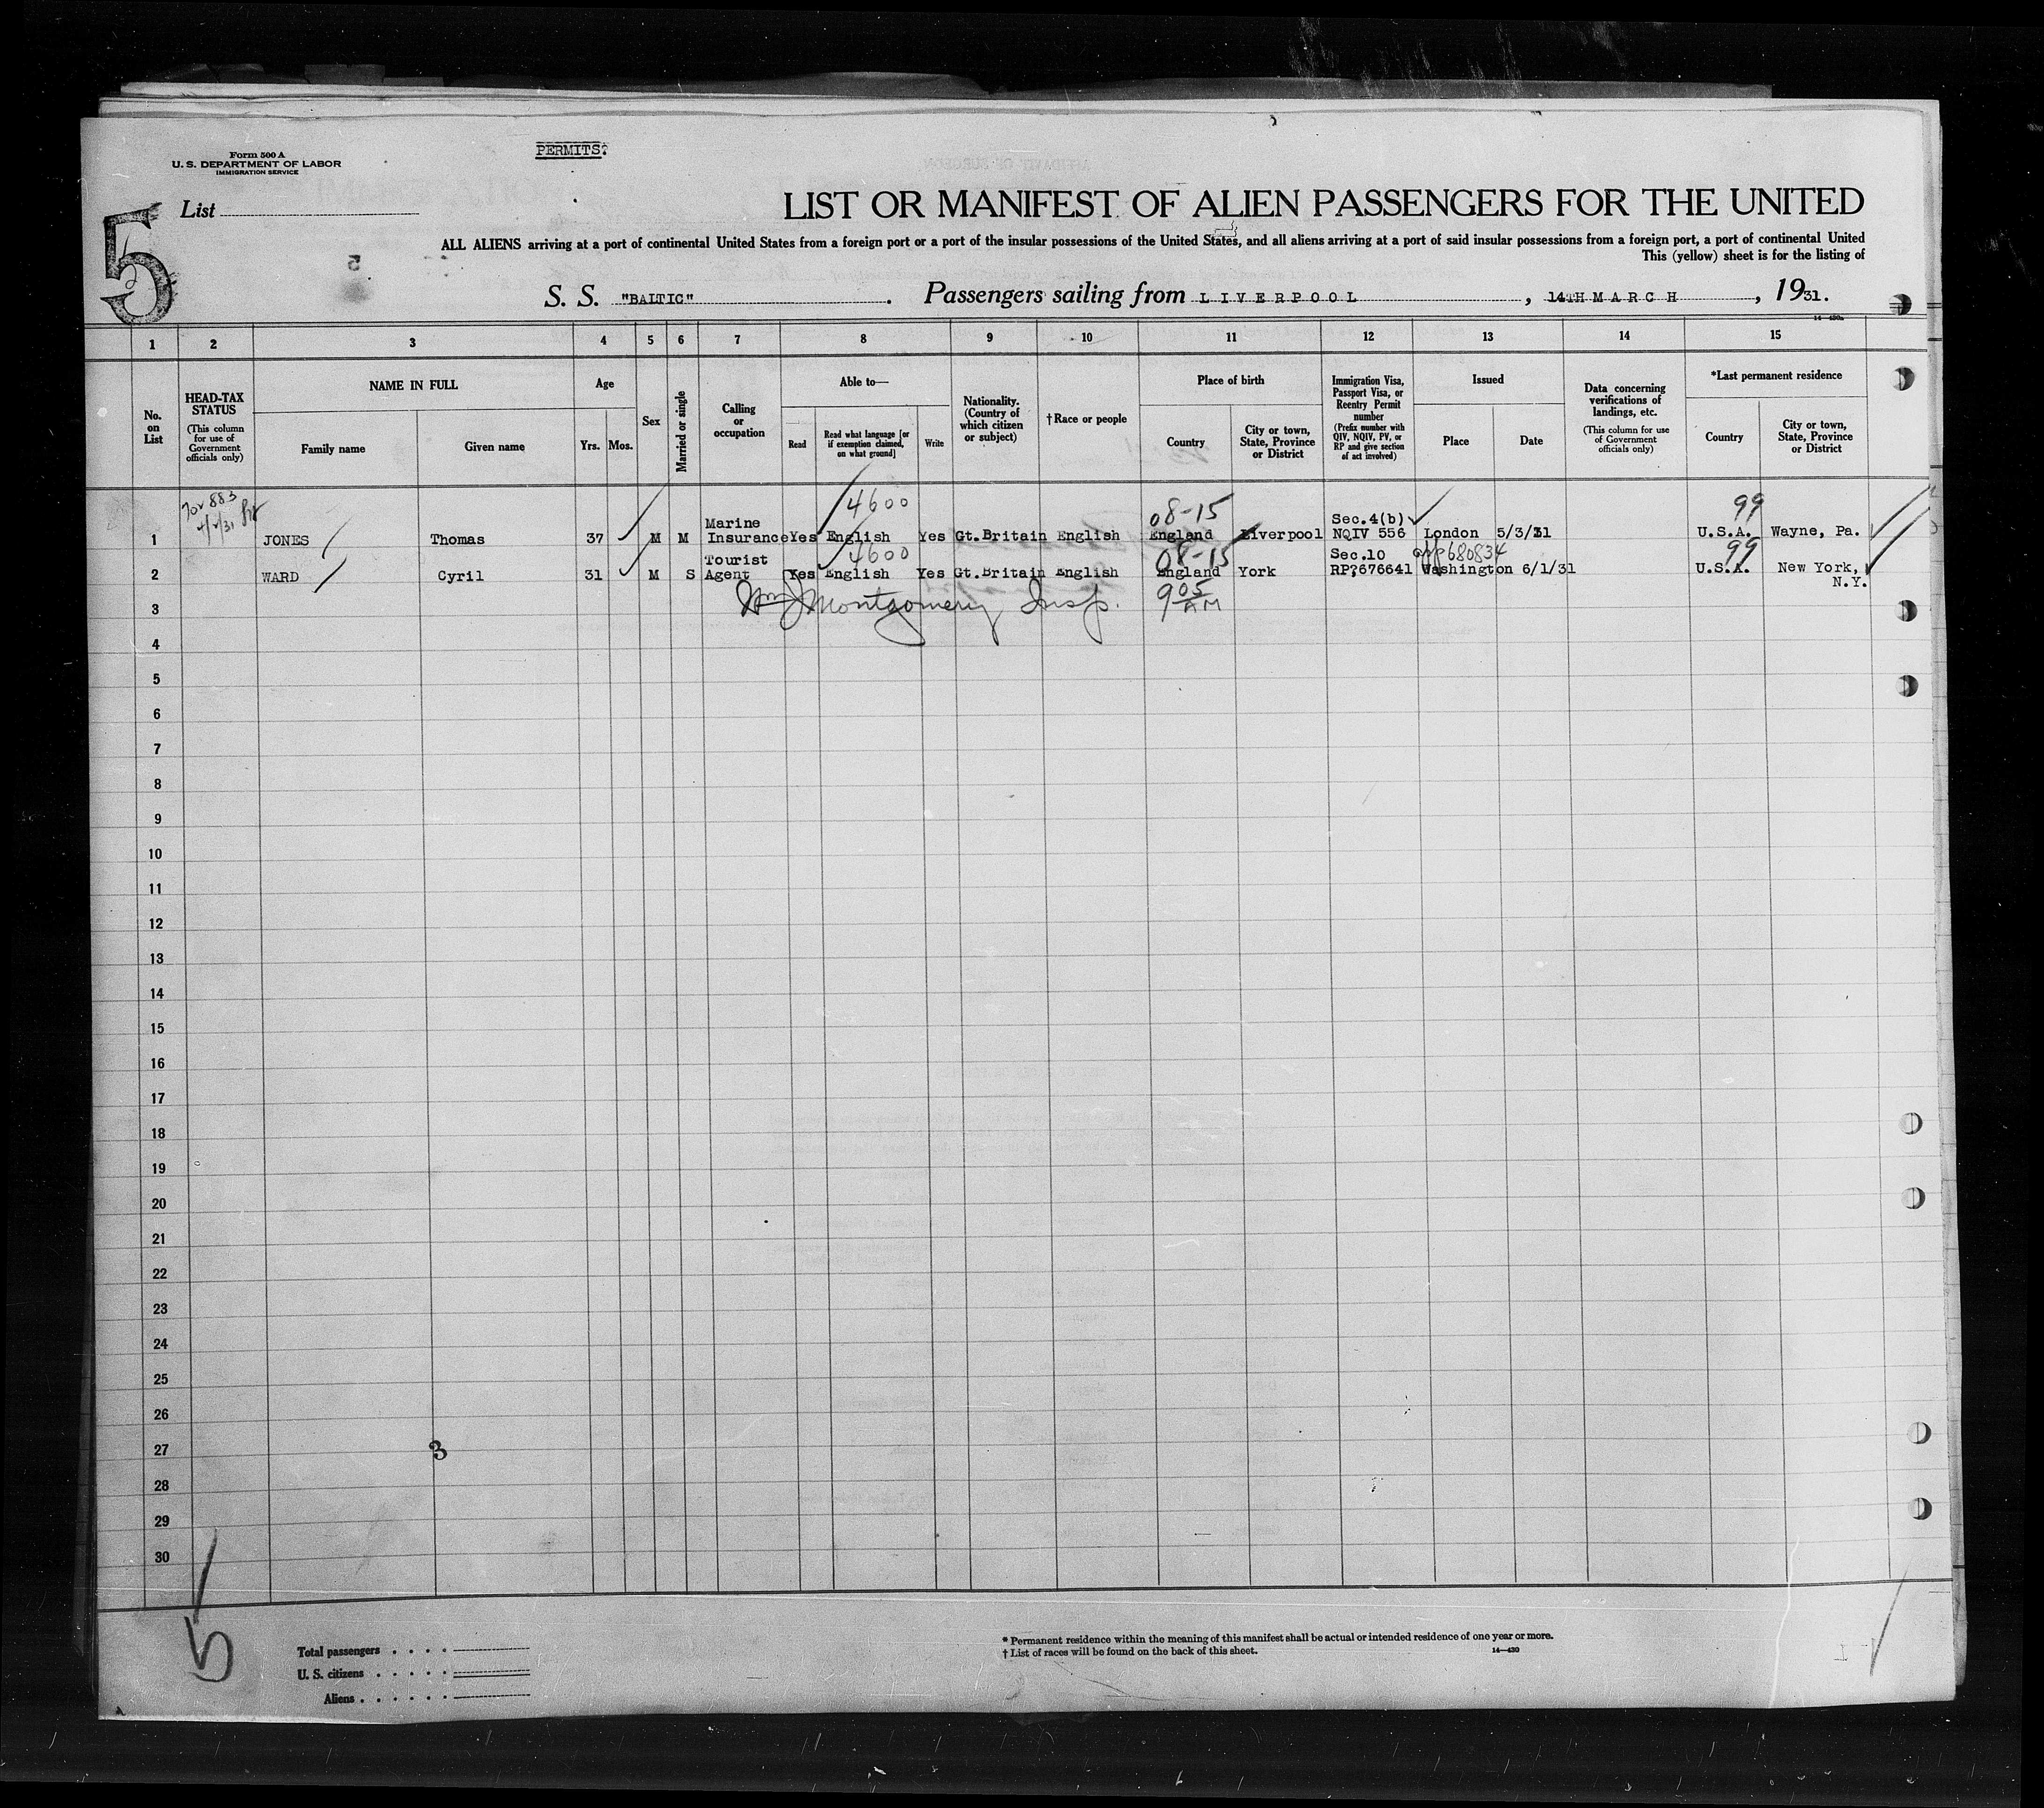 Form 500 A
U. S. DEPARTMENT OF LABOR
IMMIGRATION SERVICE
PERMITS.
List
5
LIST OR MANIFEST OF ALIEN PASSENGERS FOR THE UNITED
ALL ALIENS arriving at a port of continental United States from a foreign port or a port of the insular possessions of the United States, and all aliens arriving at a port of said insular possessions from a foreign port, a port of continental United
This (yellow) sheet is for the listing of
S. S. "BALTIC" . Passengers sailing from LIVERPOOL , 14TH MARCH , 1931.
14—430a
1 2 3 4 5 6 7 8 9 10 11 12 13 14 15
No. on List
HEAD-TAX STATUS
(This column for use of Government officials only)
NAME IN FULL
Family name Given name
Age
Yrs. Mos.
Sex
Married or single
Calling or occupation
Able to—
Read Read what language [or if exemption claimed, on what ground] Write
Nationality. (Country of which citizen or subject)
† Race or people
Place of birth
Country City or town, State, Province or District
Immigration Visa, Passport Visa, or Reentry Permit number
(Prefix number with QIV, NQIV, PV, or RP and give section of act involved)
Issued
Place Date
Data concerning verifications of landings, etc.
(This column for use of Government officials only)
*Last permanent residence
Country City or town, State, Province or District
703 883 4600 08-15 99
4/2/31 Marine Sec.4(b)
1 JONES Thomas 37 M M Insurance Yes English Yes Gt.Britain English England Liverpool NQIV 556 London 5/3/31 U.S.A. Wayne, Pa.
4600 08-15 680834 99
Tourist Sec.10
2 WARD Cyril 31 M S Agent Yes English Yes Gt.Britain English England York RP?676641 Washington 6/1/31 U.S.A. New York,
N.Y.
3 Wm J Montgomery Insp. 9 05 AM
4
5
6
7
8
9
10
11
12
13
14
15
16
17
18
19
20
21
22
23
24
25
26
27 3
28
29
30
5
Total passengers
U. S. citizens
Aliens
* Permanent residence within the meaning of this manifest shall be actual or intended residence of one year or more.
† List of races will be found on the back of this sheet. 14—430